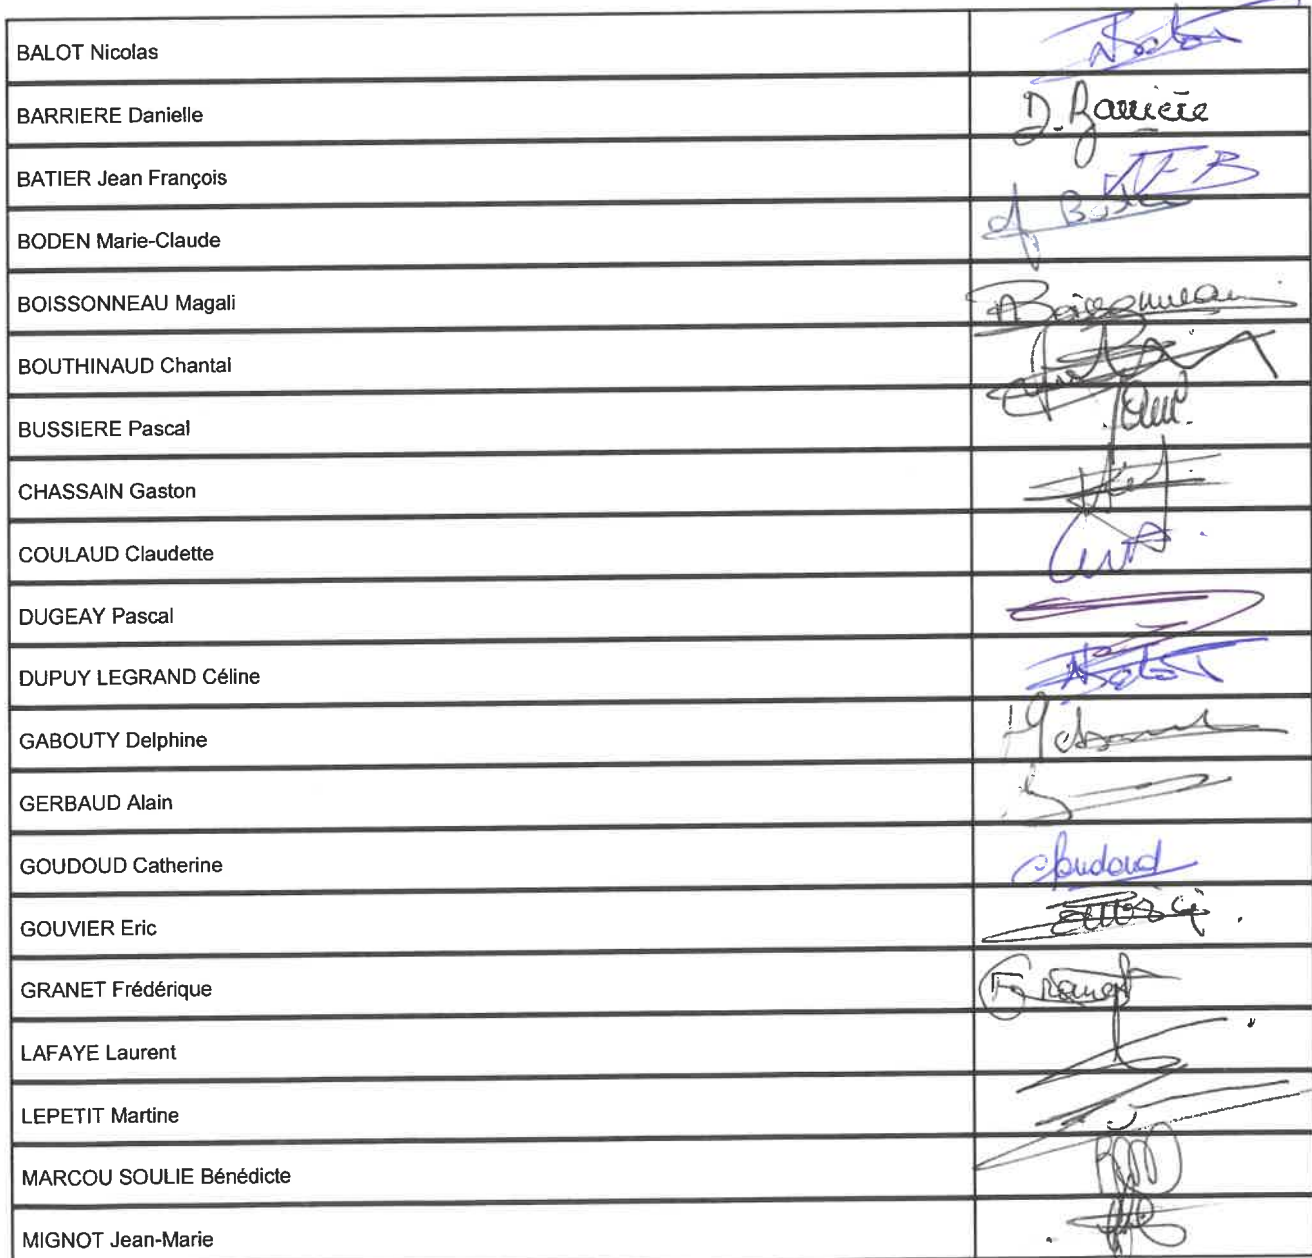 BALOT Nicolas
BARRIERE Danielle
D. Barrière
BATIER Jean François
JFB
BODEN Marie-Claude
BOISSONNEAU Magali
Boissonneau
BOUTHINAUD Chantal
BUSSIERE Pascal
CHASSAIN Gaston
COULAUD Claudette
DUGEAY Pascal
DUPUY LEGRAND Céline
GABOUTY Delphine
GERBAUD Alain
GOUDOUD Catherine
Goudoud
GOUVIER Eric
GRANET Frédérique
Granet
LAFAYE Laurent
LEPETIT Martine
MARCOU SOULIE Bénédicte
MIGNOT Jean-Marie